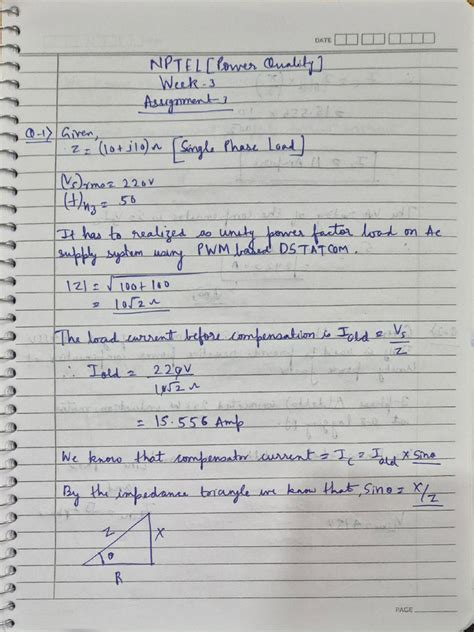 DATE
NPTEL [Power Quality]
Week-3
Assignment-3
Q-1) Given,
Z = (10+j10)Ω [Single Phase Load]
(Vs)rms = 220V
(f)Hz = 50
It has to realized so unity power factor load on Ac
supply system using PWM based DSTATCOM.
|Z| = √100+100
= 10√2 Ω
The load current before compensation is Iold = Vs/Z
∴ Iold = 220V/10√2 Ω
= 15.556 Amp
We know that compensator current = Ic = Iold × Sinθ
By the impedance triangle we know that, Sinθ = X/Z
Z
X
θ
R
PAGE